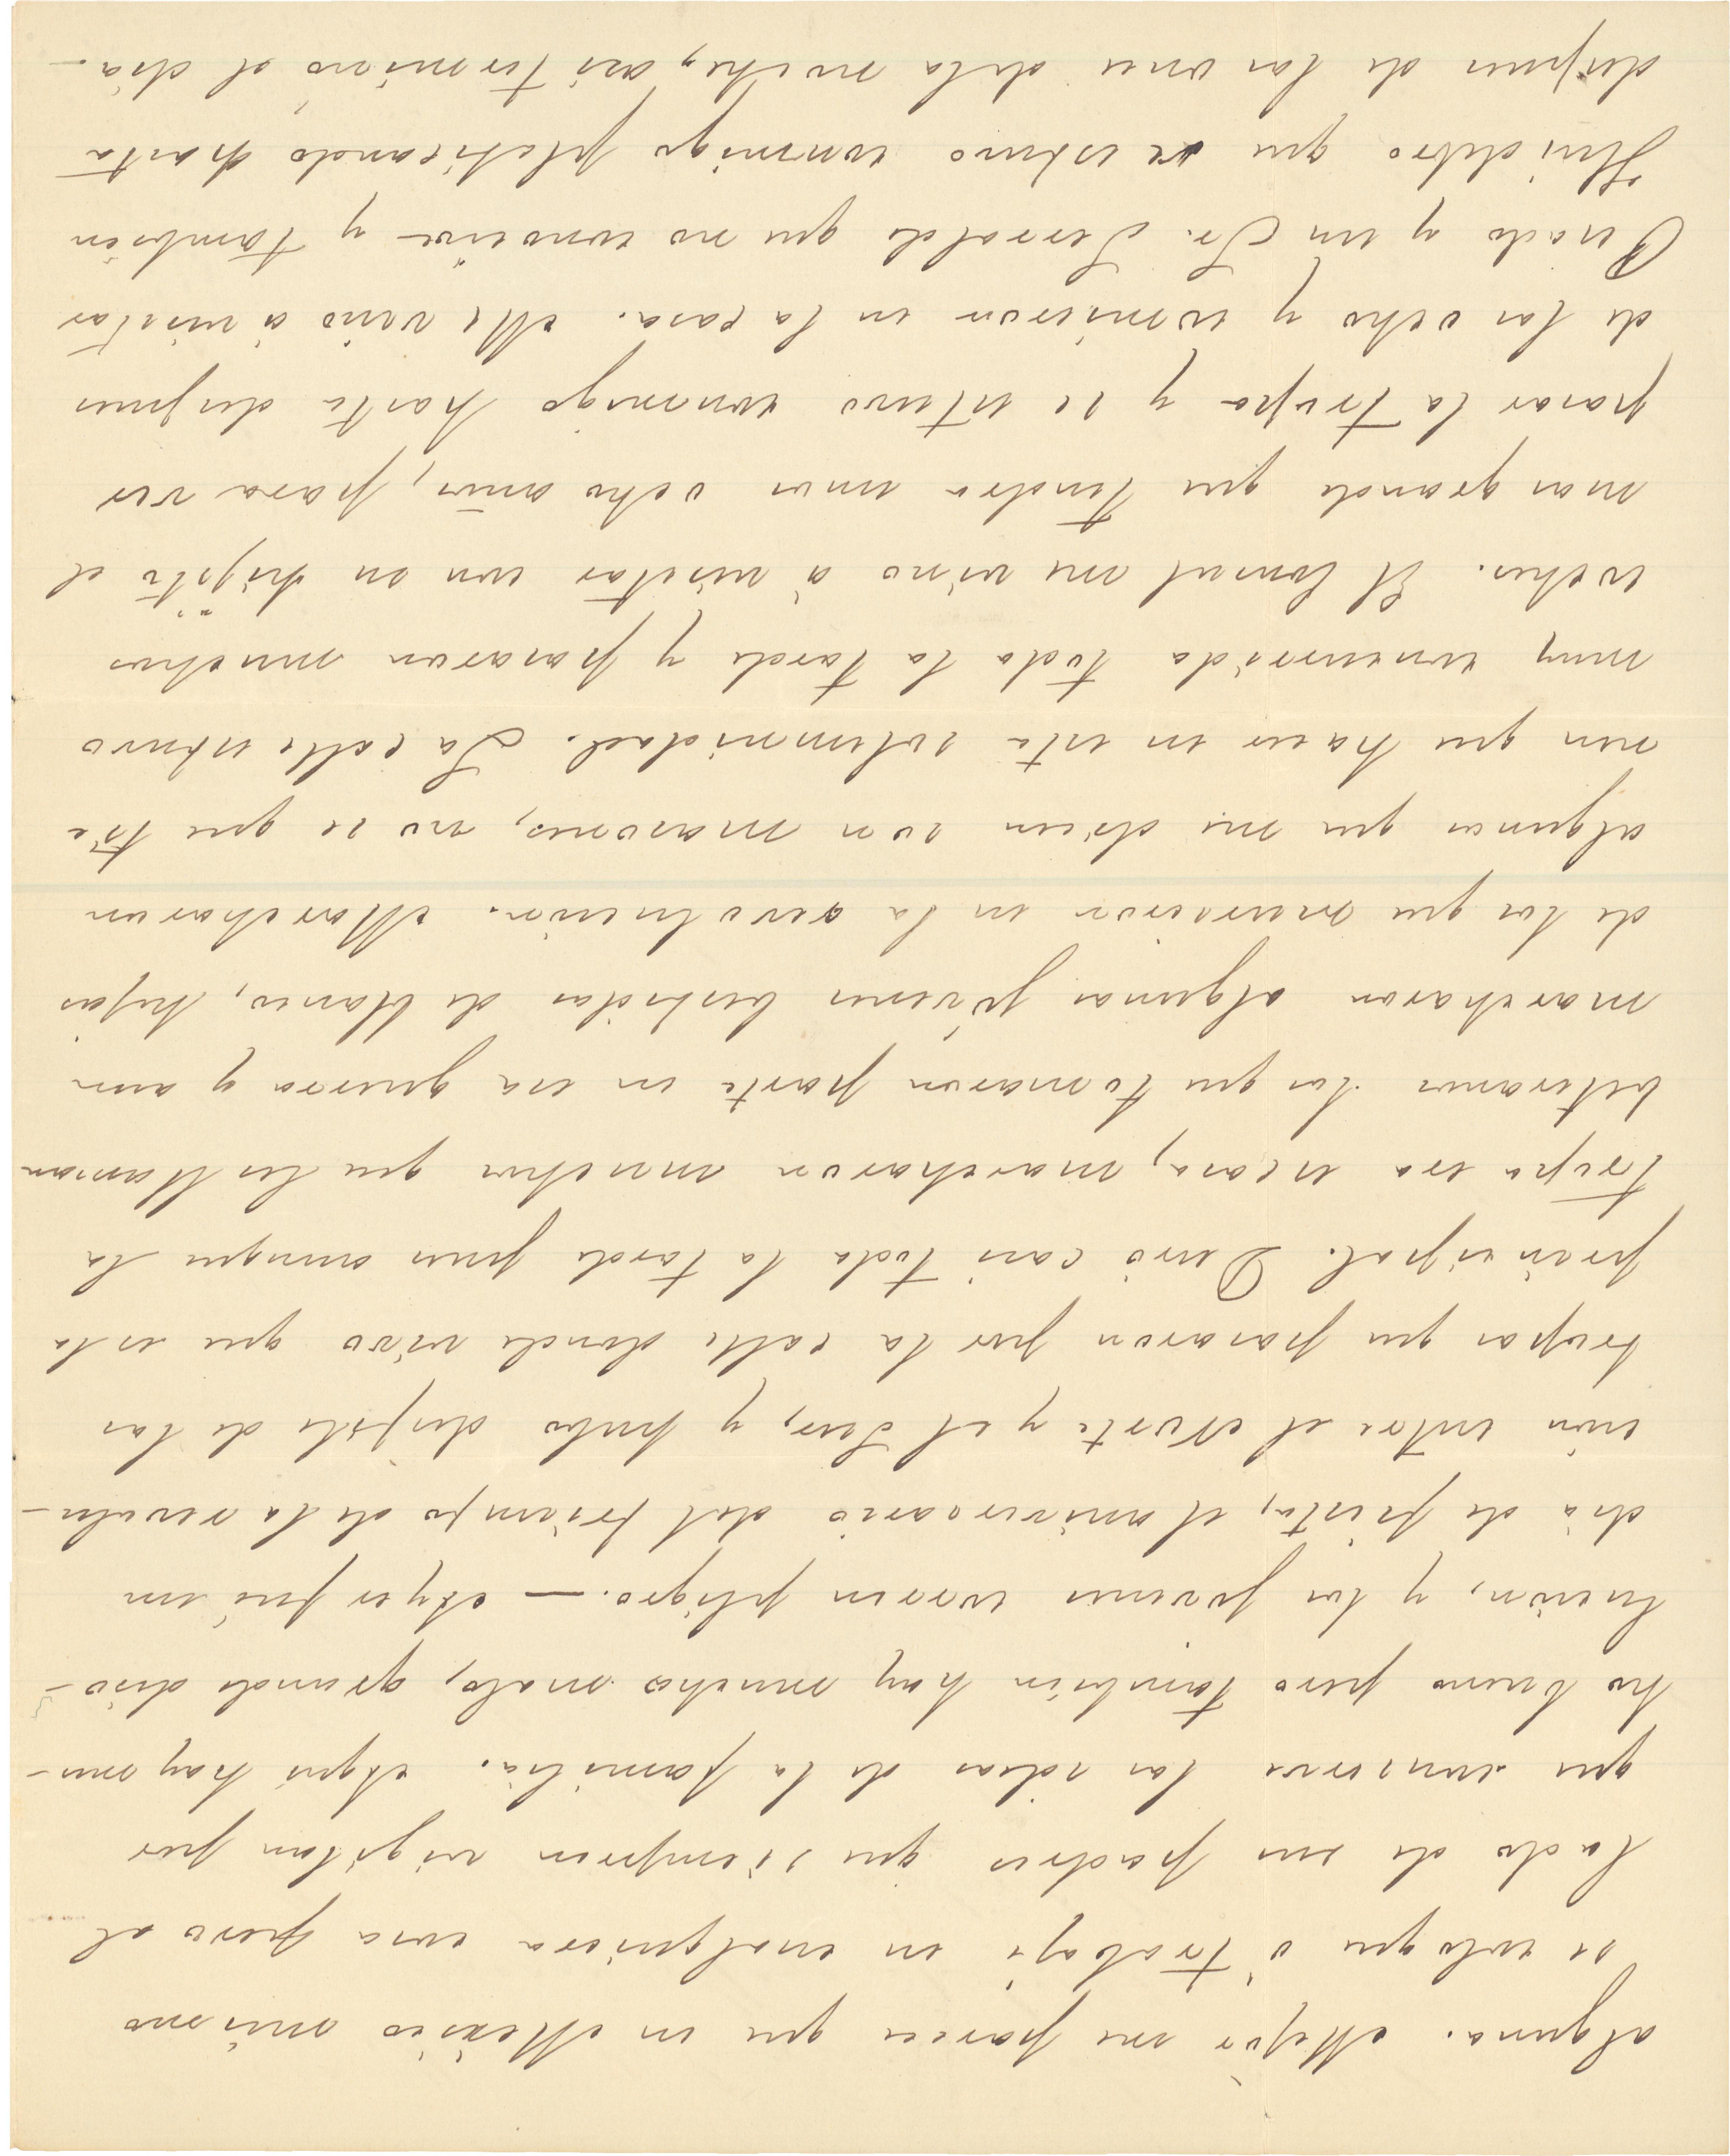 alguna. Mejor me parece que en México mismo
se coloque ó trabaje en cualquiera cosa pero al
lado de sus padres que siempren vigilan por
que conserve las ideas de la familia. Aquí hay mu-
ho bueno pero también hay mucho malo, grande diso-
lución, y los jovenes corren peligro. — Ayer fué un
dia de fiesta, el aniversario del triumfo de la revolu-
ción entre el Norte y el Sur, y hubo desfile de las
tropas que pasaron por la calle donde vivo que es la
principal. Duró casi toda la tarde pues aunque la
tropa era escasa, marcharon muchos que les llaman
beteranos los que tomaron parte en esa guerra y aun
marcharon algunas jóvenes bestidas de blanco, hijas
de los que murieron en la revolución. Marcharon
algunos que me dicen son masones, no se que tie
nen que hacer en esta solemnidad. La calle estuvo
muy concurrida toda la tarde y pasaron muchos
coches. El Consul me vino á visitar con su hijito el
mas grande que tendra unos ocho años, para ver
pasar la tropa y se estuvo conmigo hasta despues
de las ocho y comieron en la casa. Me vino á visitar
Osado y un Sr. Serralde que no conocive y también
Huidobro que se estuvo conmigo platicando hasta
despues de las once de la noche, asi terminó el dia.